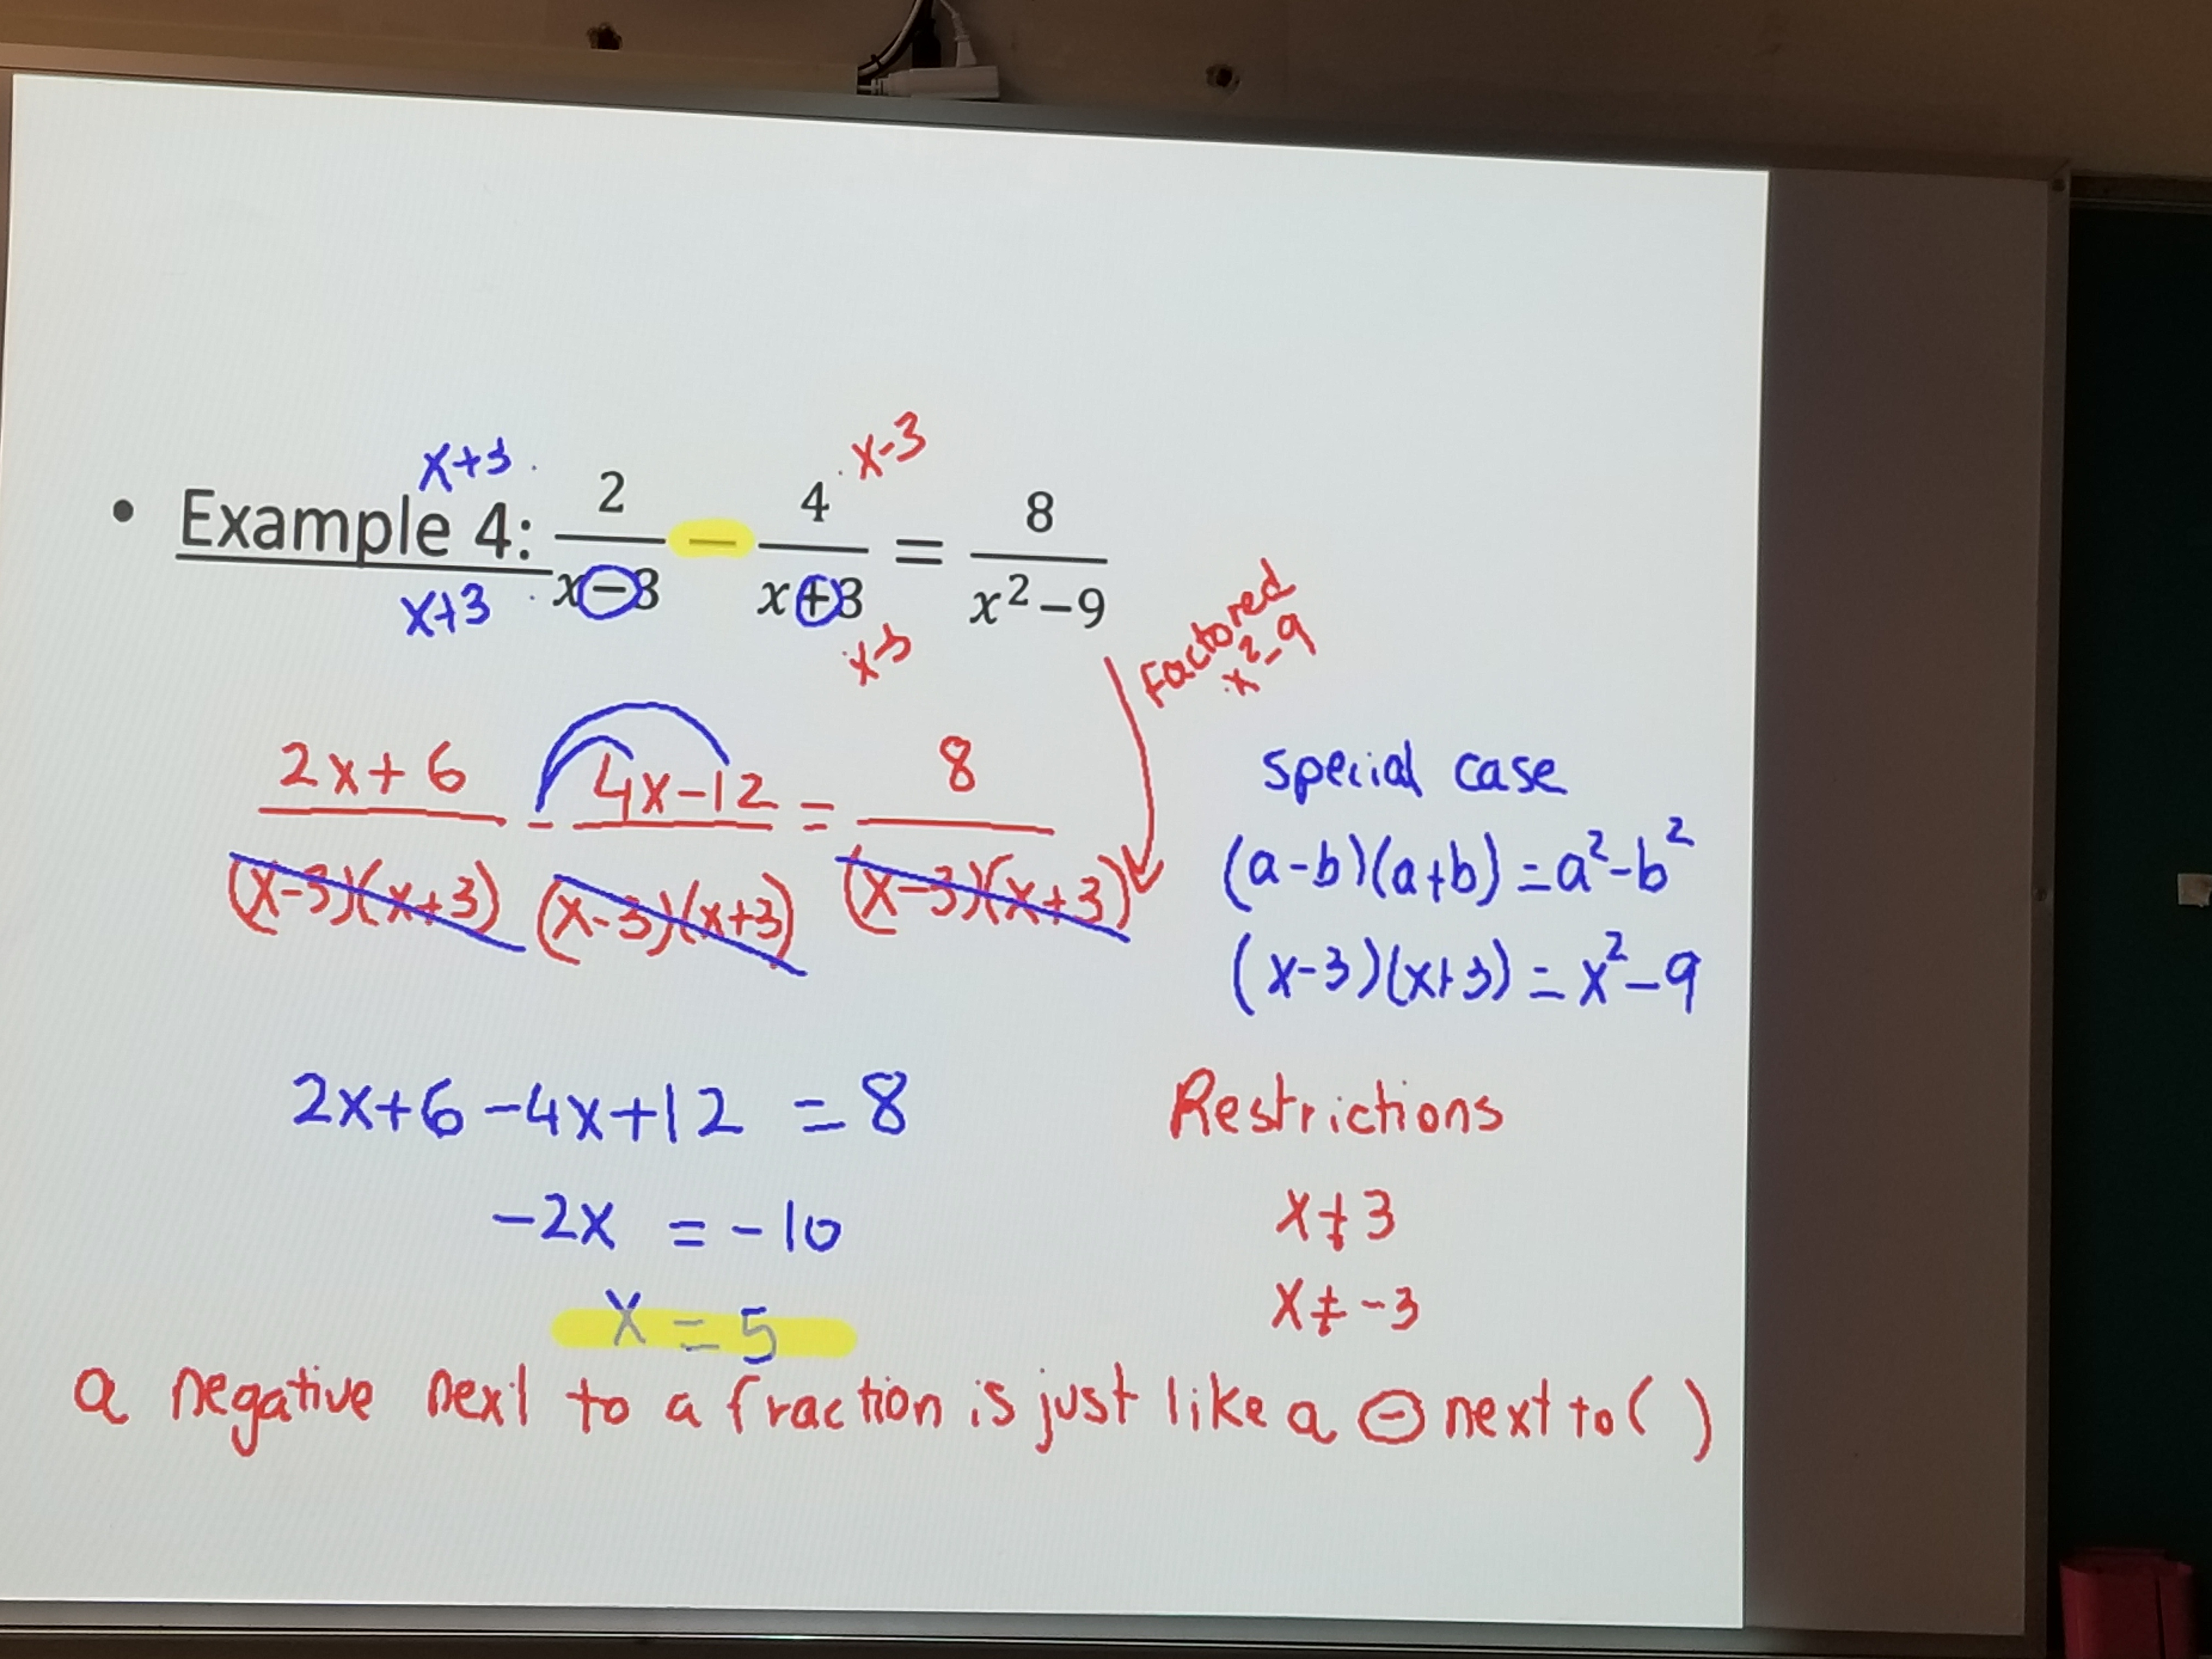 x+3 · x-3
• Example 4: 2/(x-3) - 4/(x+3) = 8/(x²-9)
x+3 · x-3
Factored
x²-9
(2x+6)/((x-3)(x+3)) - (4x-12)/((x-3)(x+3)) = 8/((x-3)(x+3))
special case
(a-b)(a+b) = a²-b²
(x-3)(x+3) = x²-9
2x+6-4x+12 = 8
-2x = -10
x = 5
Restrictions
x≠3
x≠-3
a negative next to a fraction is just like a ⊖ next to ( )